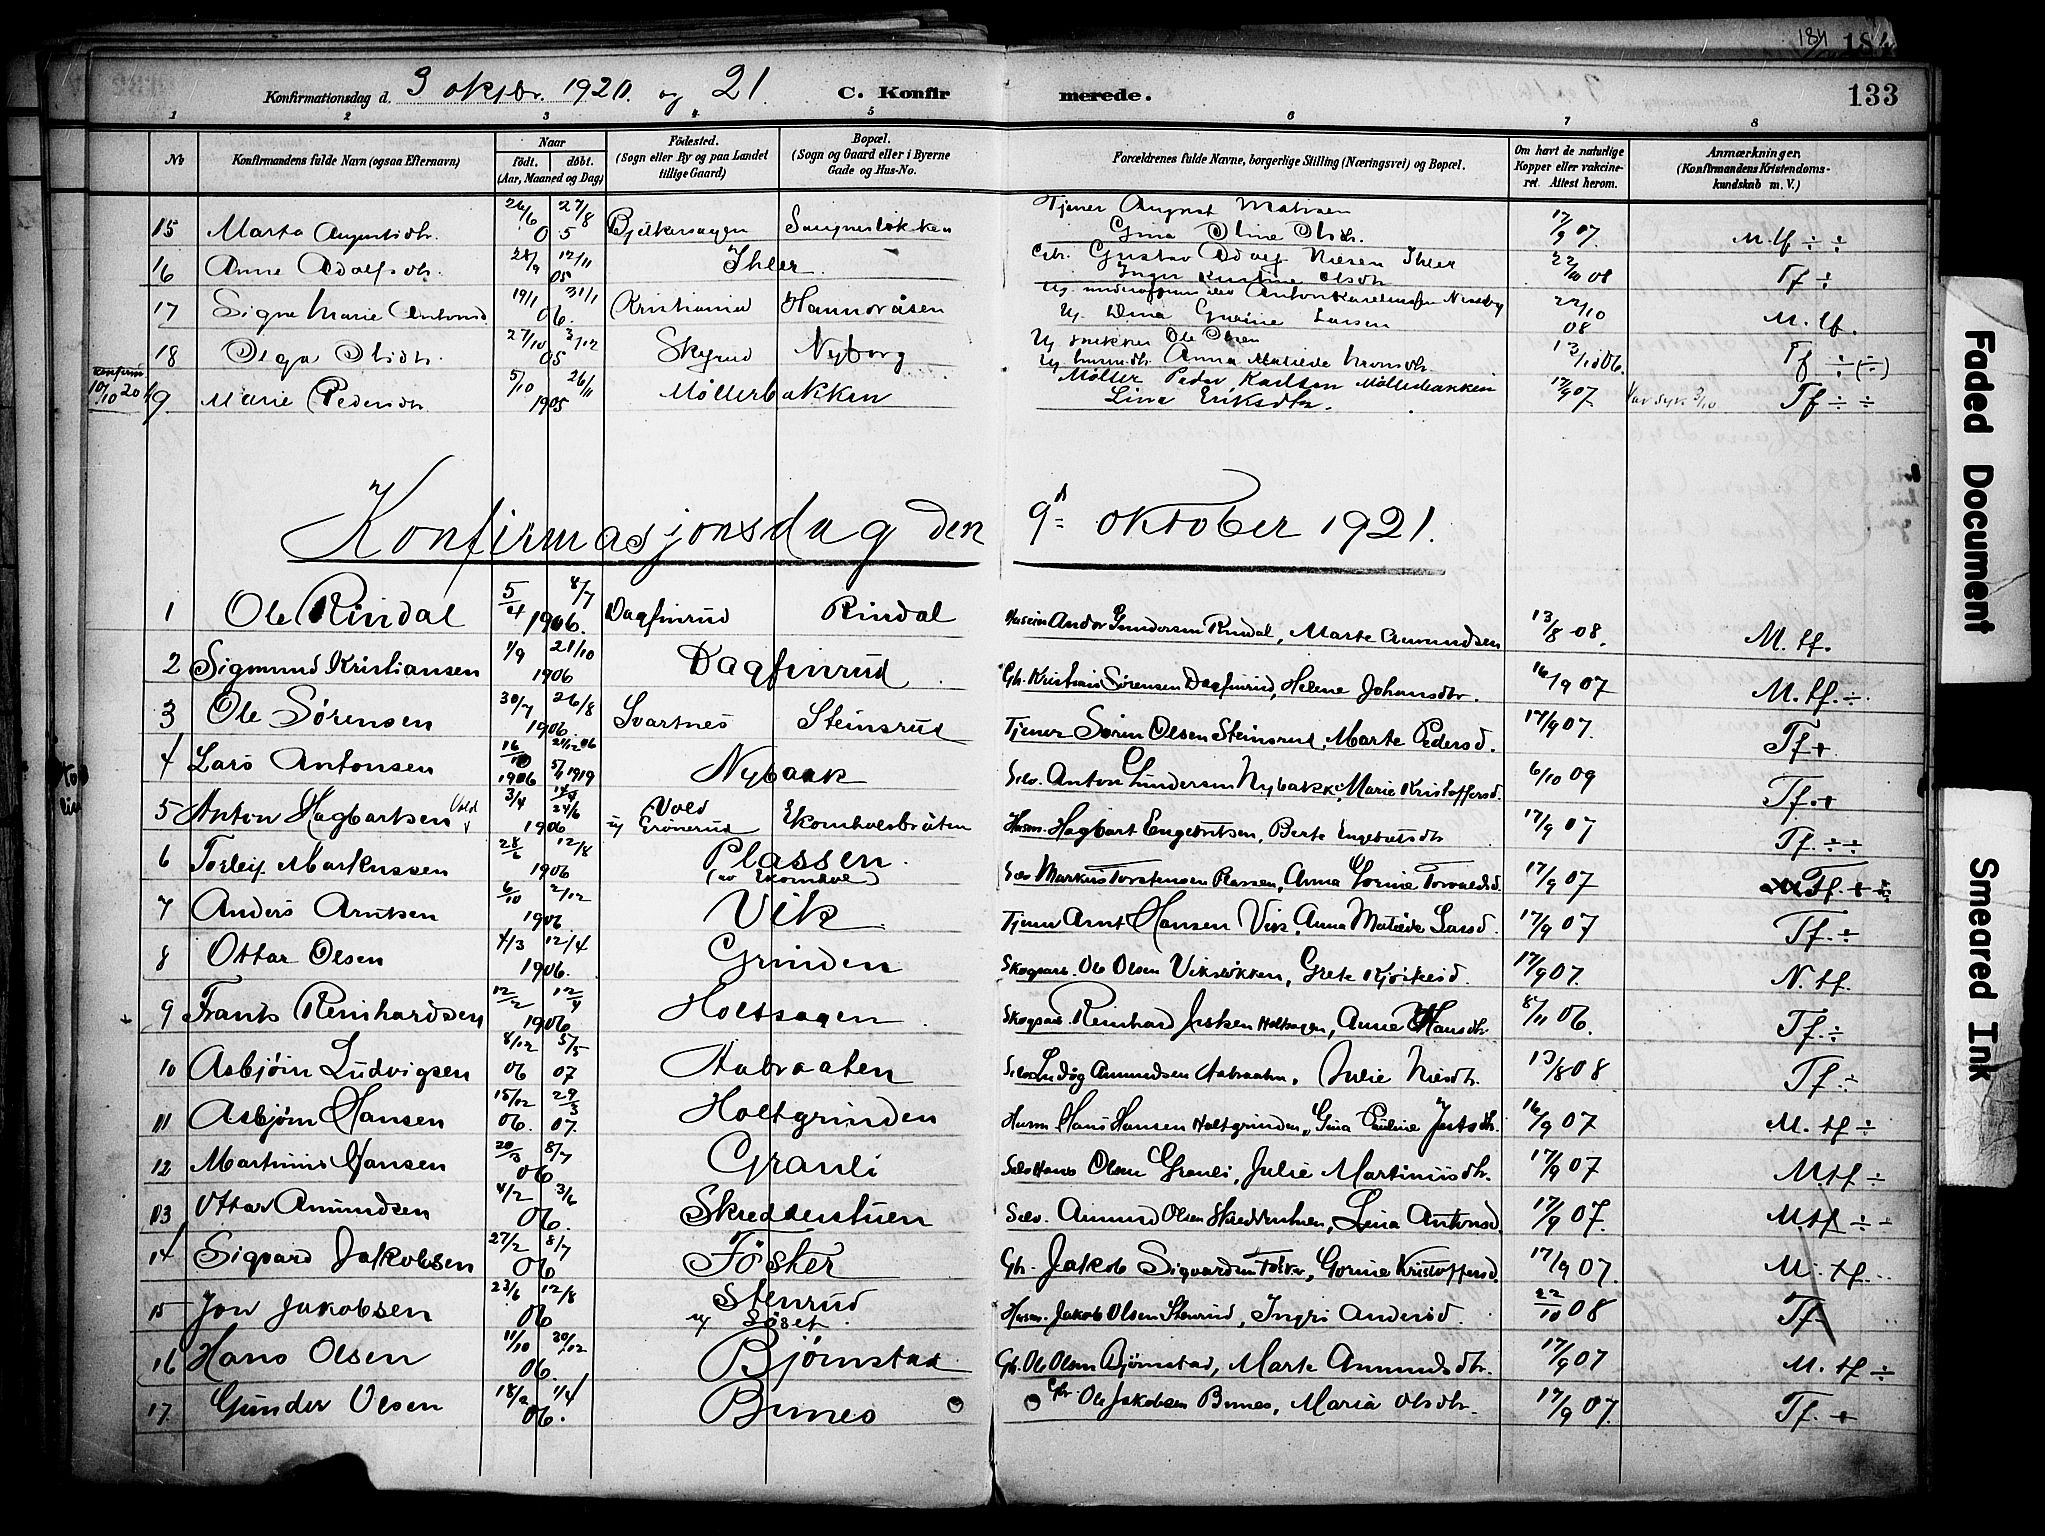 184 184
Konfirmationsdag d. 3 oktbr. 1920. og 21. C. Konfirmerede. 133
1 2 3 4 5 6 7 8
No Konfirmandens fulde Navn (ogsaa Efternavn) Naar födt. döbt. (Aar, Maaned og Dag) Födested. (Sogn eller By og paa Landet tillige Gaard) Bopæl. (Sogn og Gaard eller i Byerne Gade og Hus-No. Forældrenes fulde Navne, borgerlige Stilling (Næringsvei) og Bopæl. Om havt de naturlige Kopper eller vakcineret. Attest herom. Anmærkninger. (Konfirmandens Kristendomskundskab m. V.)
15 Marta Augustsdtr. 26/6 27/8 05 Tjener August
Gina Oline Olsdtr. 17/9 07. M. tf ÷ ÷
16 Anne Adolfsdtr. 28/9 12/11 05 Ihler Gustav Adolf Nilsen Ihler
Inger Kristine Olsdtr 22/10 08 Tf ÷
17 Signe Marie Antonsd. 19/1 31/1 06. Kristiania Larsen 22/10 08 M. tf.
18 Olga Olsdtr. 27/10 3/12 05 Nyborg Ug. snekker Ole Olsen
Anna Matilde 13/10 06. Tf ÷ (÷)
konfirm 10/10 20 19 Marie Pedersdtr 5/10 26/11 1905 Møllerbakken Møller Peder Karlsen Møllerbakken
Lina Eriksdtr. 17/9 07. Var syk 3/10 Tf ÷ ÷
Konfirmasjonsdag den 9d= oktober 1921.
1 Ole Rindal 5/4 8/7 1906. Dagfinrud Rindal Andor Gundersen Rindal, Marte Amundsen 13/8 08. M. tf.
2 Sigmund Kristiansen 1/9 21/10 1906 Dagfinrud Gbr. Kristian Sørensen Dagfinrud, Helene Johansdtr. 16/9 07 M. tf. ÷
3 Ole Sørensen 30/7 26/8 1906. Svartnes Steinsrud Tjener Søren Olsen Steinsrud, Marte Pedersd. 17/9 07. Tf +
4 Lars Antonsen 16/10 1906 5/4 1919 Nybakk Selv. Anton Gundersen Nybakk, Marie Kristoffersd. 6/10 09 Tf. +
5 Anton Hagbartsen Vold 3/4 24/6 1906 Vold Husm. Hagbart Engebretsen, Berte Engebretsdtr 17/9 07 Tf. ÷ ÷
6 Torleif Markussen 28/6 12/8 1906 Plassen. Selv Markus Torstensen Plassen, Anna Gorine Torvaldsd. 17/9 07 Tf. ÷ ÷
7 Anders Arntsen 6/10 2/12 1906. Vik Tjener Arnt Hansen Vik, Anna Matilde Larsd. 17/9 07 Tf. ÷
8 Ottar Olsen 4/3 12/4 1906. Grinden Skogsarb. Ole Olsen Vikseløkken, Grete 17/9 07. N. tf.
9 Frants Reinhardsen 12/2 12/4 1906 Holtsagen Skogsarb Reinhard Holtsagen, Anne Hansdtr. 8/11 06. Tf. ÷
10 Asbjörn Ludvigsen 8/12 06 5/5 07 Aabraaten Selv. Ludvig Amundsen Aabraaten. Julie Nilsdtr. 13/8 08 Tf. ÷
11 Asbjørn Hansen 15/12 06. 29/3 07. Holtgrinden Husm Hans Hansen Holtgrinden, Gina Pauline 16/9 07 M. tf ÷
12 Martinius Hansen 20/3 8/7 06 Granli Selv Hans Olsen Granli, Julie Martiniusdtr. 17/9 07 M. tf ÷
13 Ottar Amundsen 4/2 3/6 06. Skredderstuen Selv. Amund Olsen Skredderstuen, Lina Antonsd 17/9 07. M tf ÷ ÷
14 Sigvard Jakobsen 27/2 8/7 06 Fösker Gbr. Jakob Sigvardsen Fösker, Gorine Kristoffersd. 17/9 07. M. tf.
15 Jon Jakobsen 23/6 12/8 06 Stenrud
Husm. Jakob Olsen Stenrud, Ingri Andersd. 22/10 08 Tf
16 Hans Olsen 11/10 20/12 06. Bjørnstad Gbr. Ole Olsen Bjørnstad, Marte Amundsdtr. 17/9 07 M. tf ÷
17. Gunder Olsen 18/2 1/4 06. Brunes Gbr Ole Jakobsen Brunes, Maria Olsdtr. 17/9 07. Tf. +
Faded Document
Smeared Ink